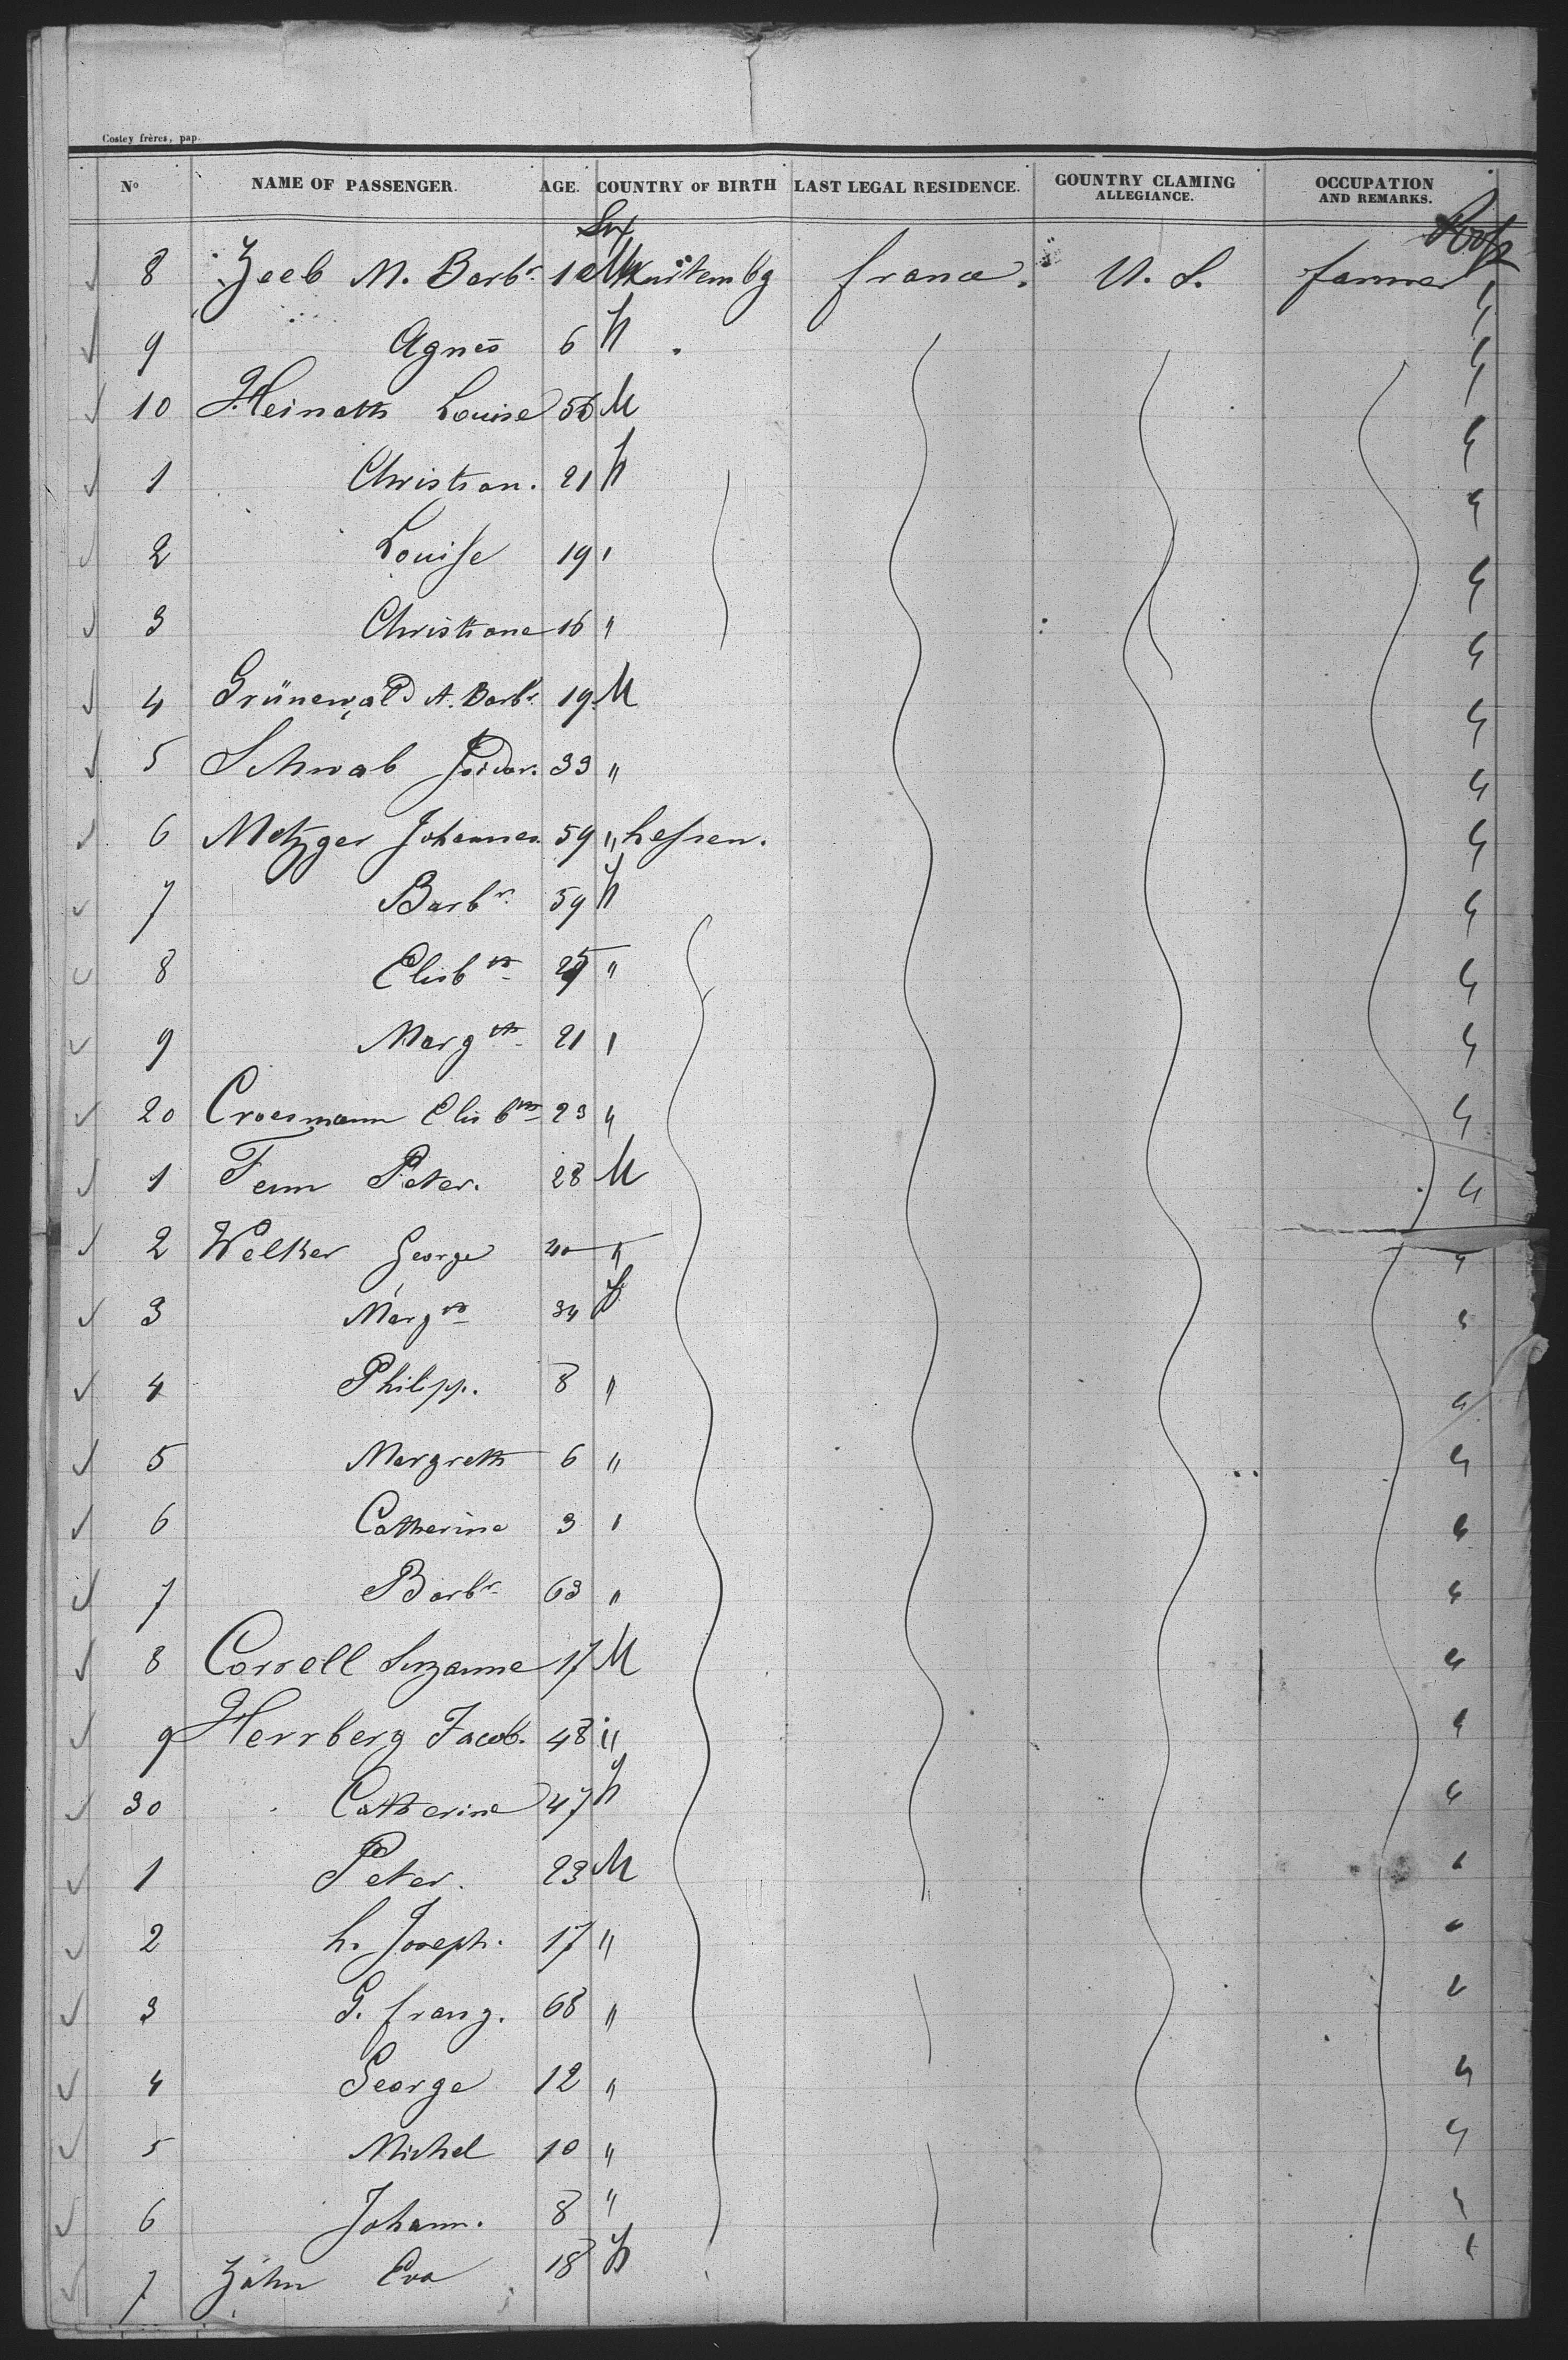 Costey frères, pap.
No NAME OF PASSENGER. AGE. COUNTRY OF BIRTH LAST LEGAL RESIDENCE. COUNTRY CLAMING ALLEGIANCE. OCCUPATION AND REMARKS.
Sex
8 Zeeb M. Barbr france. U. S. farmer
9 Agnes 6 h
10 Heinath Louise 56 M
1 Christian. 21 h
2 Louise 19 "
3 Christiane 16 "
4 Grünewald A. Barbr 19 M
5 Schwab 33 "
6 Metzger Johannes 59 " hessen.
7 Barbr 59 h
8 Elisbth "
9 Margth 21 "
20 Croesmann Elisbth 23 "
1 Fenn Peter. 28 M
2 Welker George 40 "
3 Margth 34 h
4 Philipp. 8 "
5 Margreth 6 "
6 Catherine 3 "
7 Barbr 63 "
8 Correll Suzanne 17 M
9 Herrberg Jacob. 48 "
30 Catherine 47 h
1 Peter. 23 M
2 h. Joseph. 17 "
3 G. franz. 68 "
4 George 12 "
5 Michel 10 "
6 Johann. 8 "
7 Zahn Eva 18 h